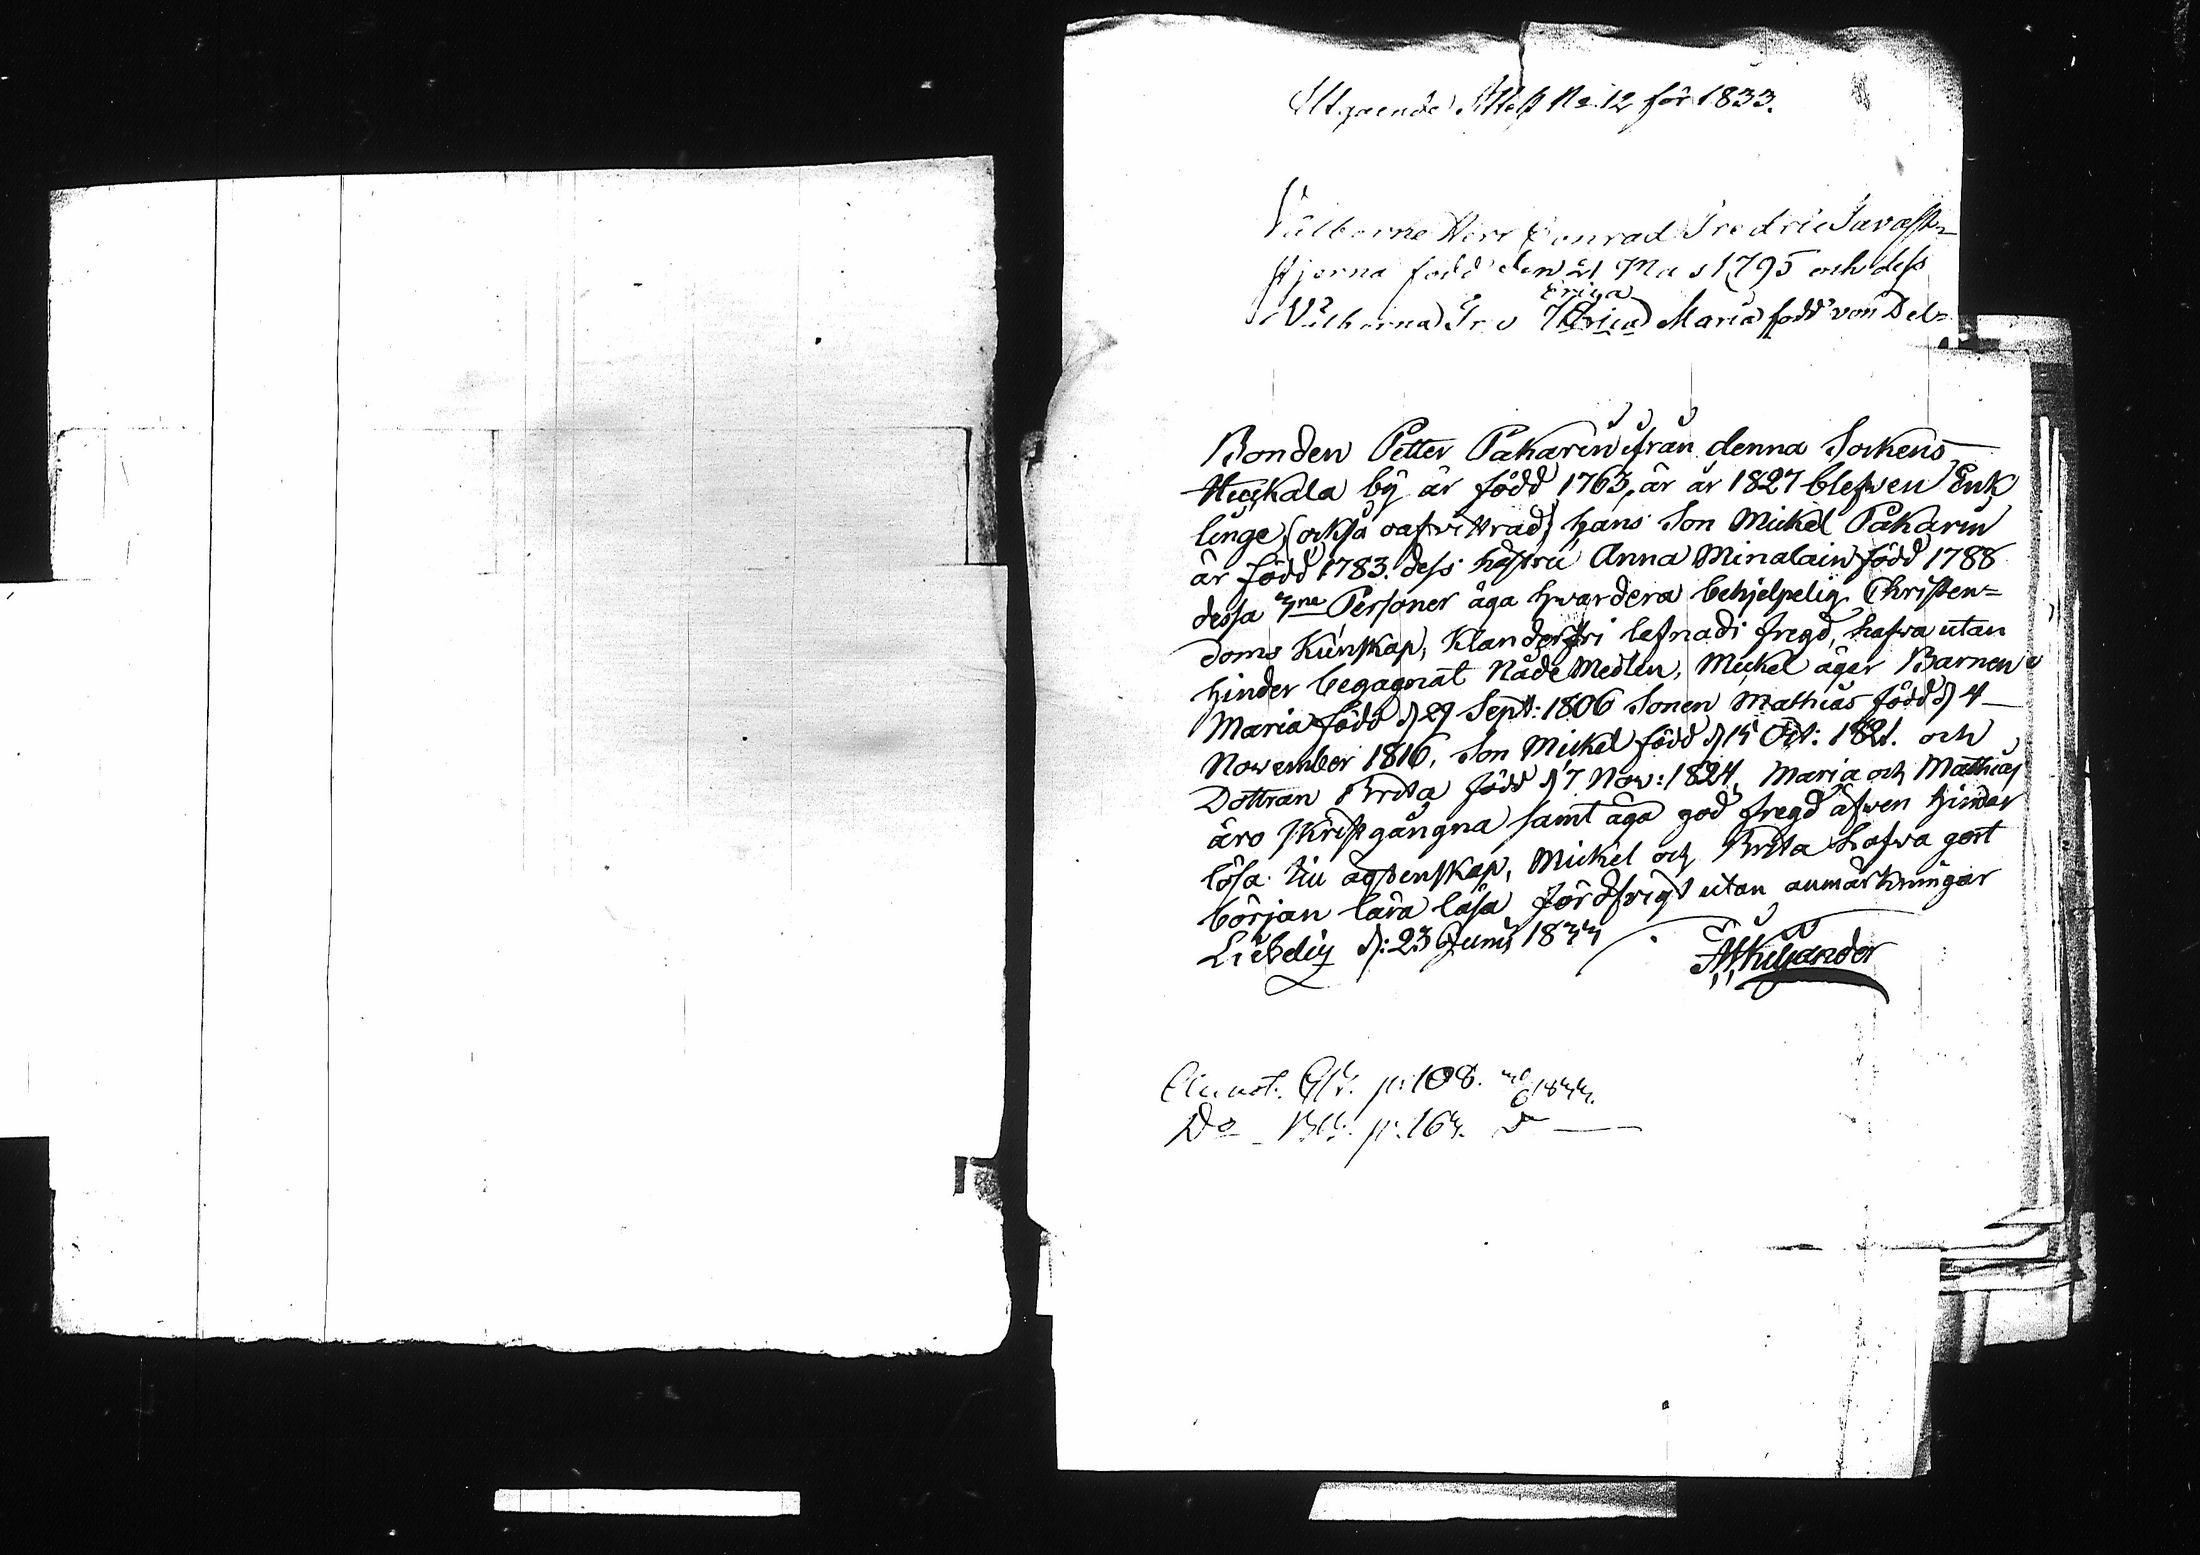 Utgaende Attest No 12 för 1833.
Välborne Herr Conrad Fredric Tavast=
stjerna född den 21 Ma s 1795 och dess
Eriga
Välborna Fru Maria född von Del=
Bonden Petter Pakarin ifrån denna Sockens
Huskala bÿ är född 1763, är år 1827 blefwen Enk
linge, (också oafvittrad) hans Son Mickel Pakarin
är född 1783. dess hustru Anna Minalain född 1788
dessa 3ne Personer äga hwardera behjelpelig Christen=
doms Kunskap, Klanderfri lefnad i fregd, hafva utan
hinder begagnat Nåde Medlen, Mickel äger Barnen
Maria född d 29 Sept: 1806 Sonen Mathias född d 4
November 1816, Son Mickel född d 15 Oct: 1821. och
Dottran Brita född d 7 Nov: 1824, Maria och Mathias
äro Skriftgångna samt äga god fregd äfven hinder
lösa till ägtenskap, Mickel och Brita hafva gort
början lära läsa för öfrigt utan anmärkningar
Liebelig d: 23 Junii 1833
Kiljander
Annot. p: 108. 1833.
Do p: 163. D